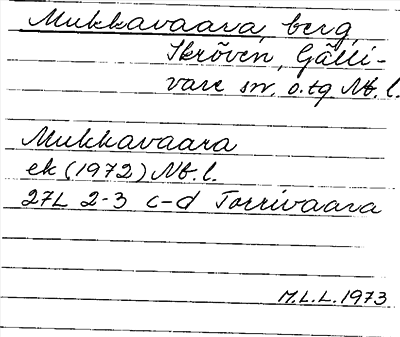 Mukkavaara, berg,
Skröven, Gälli-
vare sn. o. tg Nb. l.
Mukkavaara
ek (1972) Nb. l.
27L 2-3 c-d Torrivaara
M.L.L. 1973